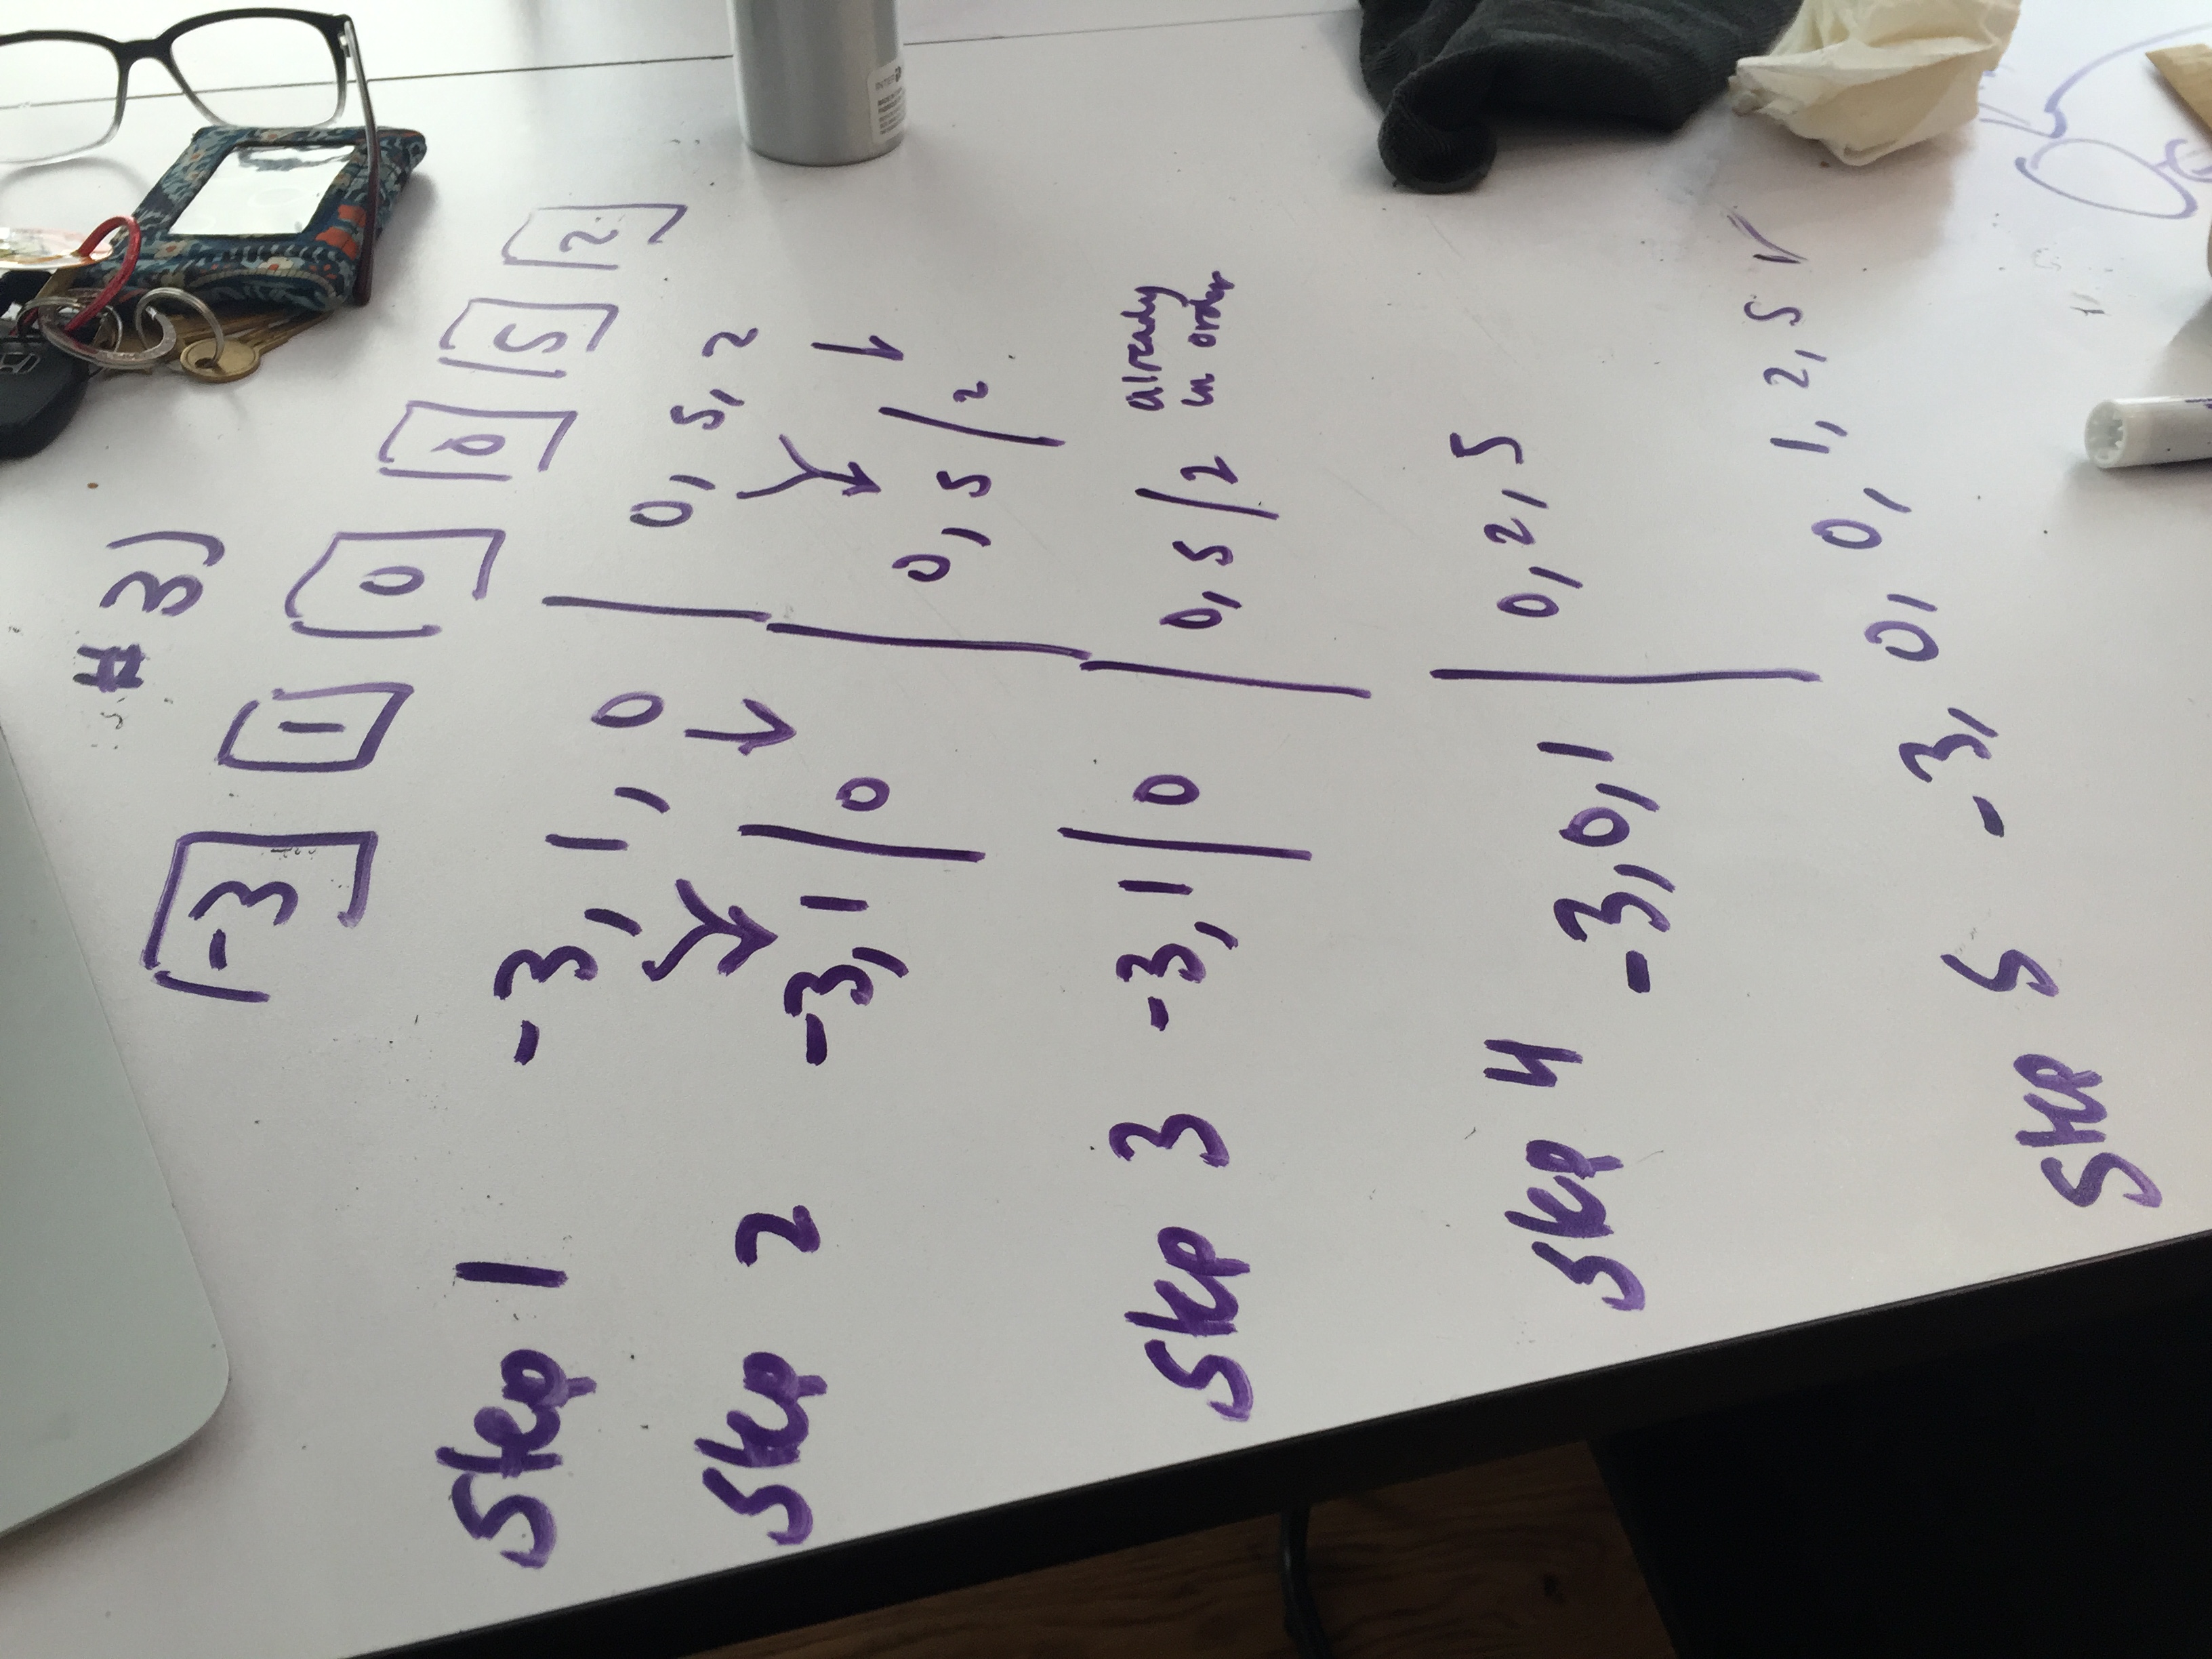 #3)
-3 1 0 0 5 2
Step 1 -3, 1, 0 | 0, 5, 2
Step 2 -3, 1 | 0 | 0, 5 | 2
Step 3 -3, 1 | 0 | 0, 5 | 2 already in order
Step 4 -3, 0, 1 | 0, 2, 5
Step 5 -3, 0, 0, 1, 2, 5 ✓